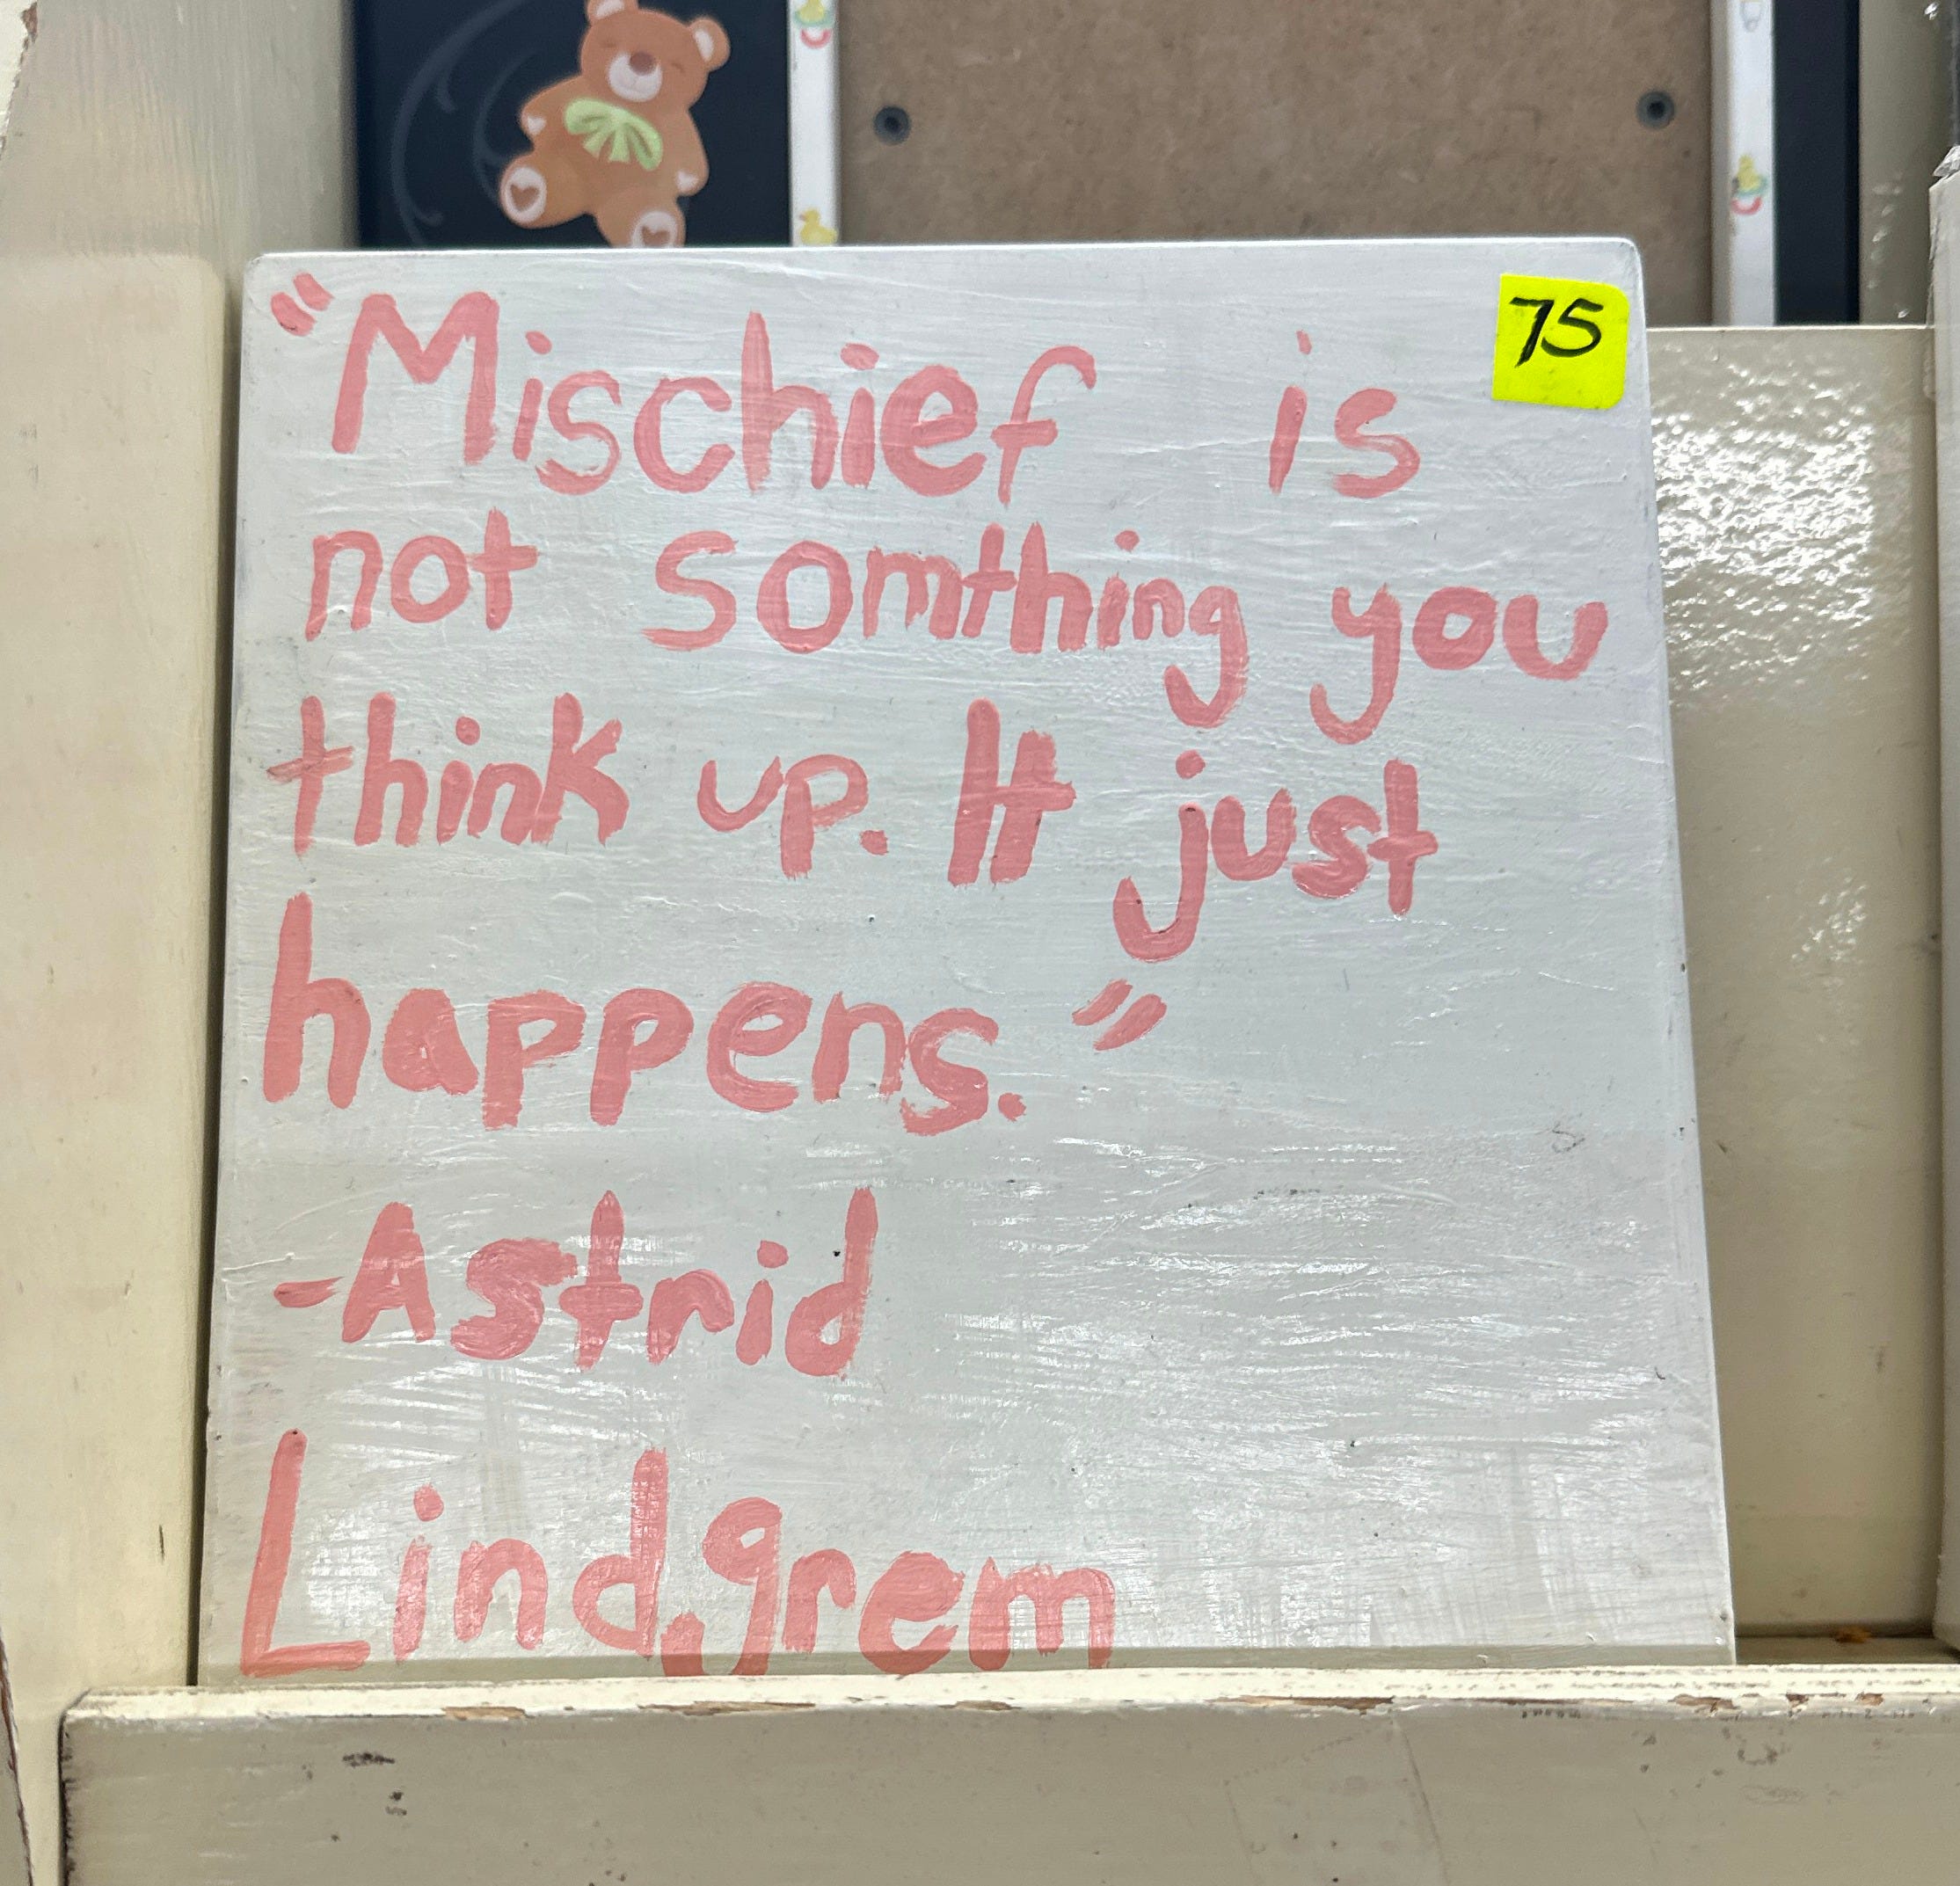 75
“Mischief is
not somthing you
think up. It just
happens.”
-Astrid
Lindgrem